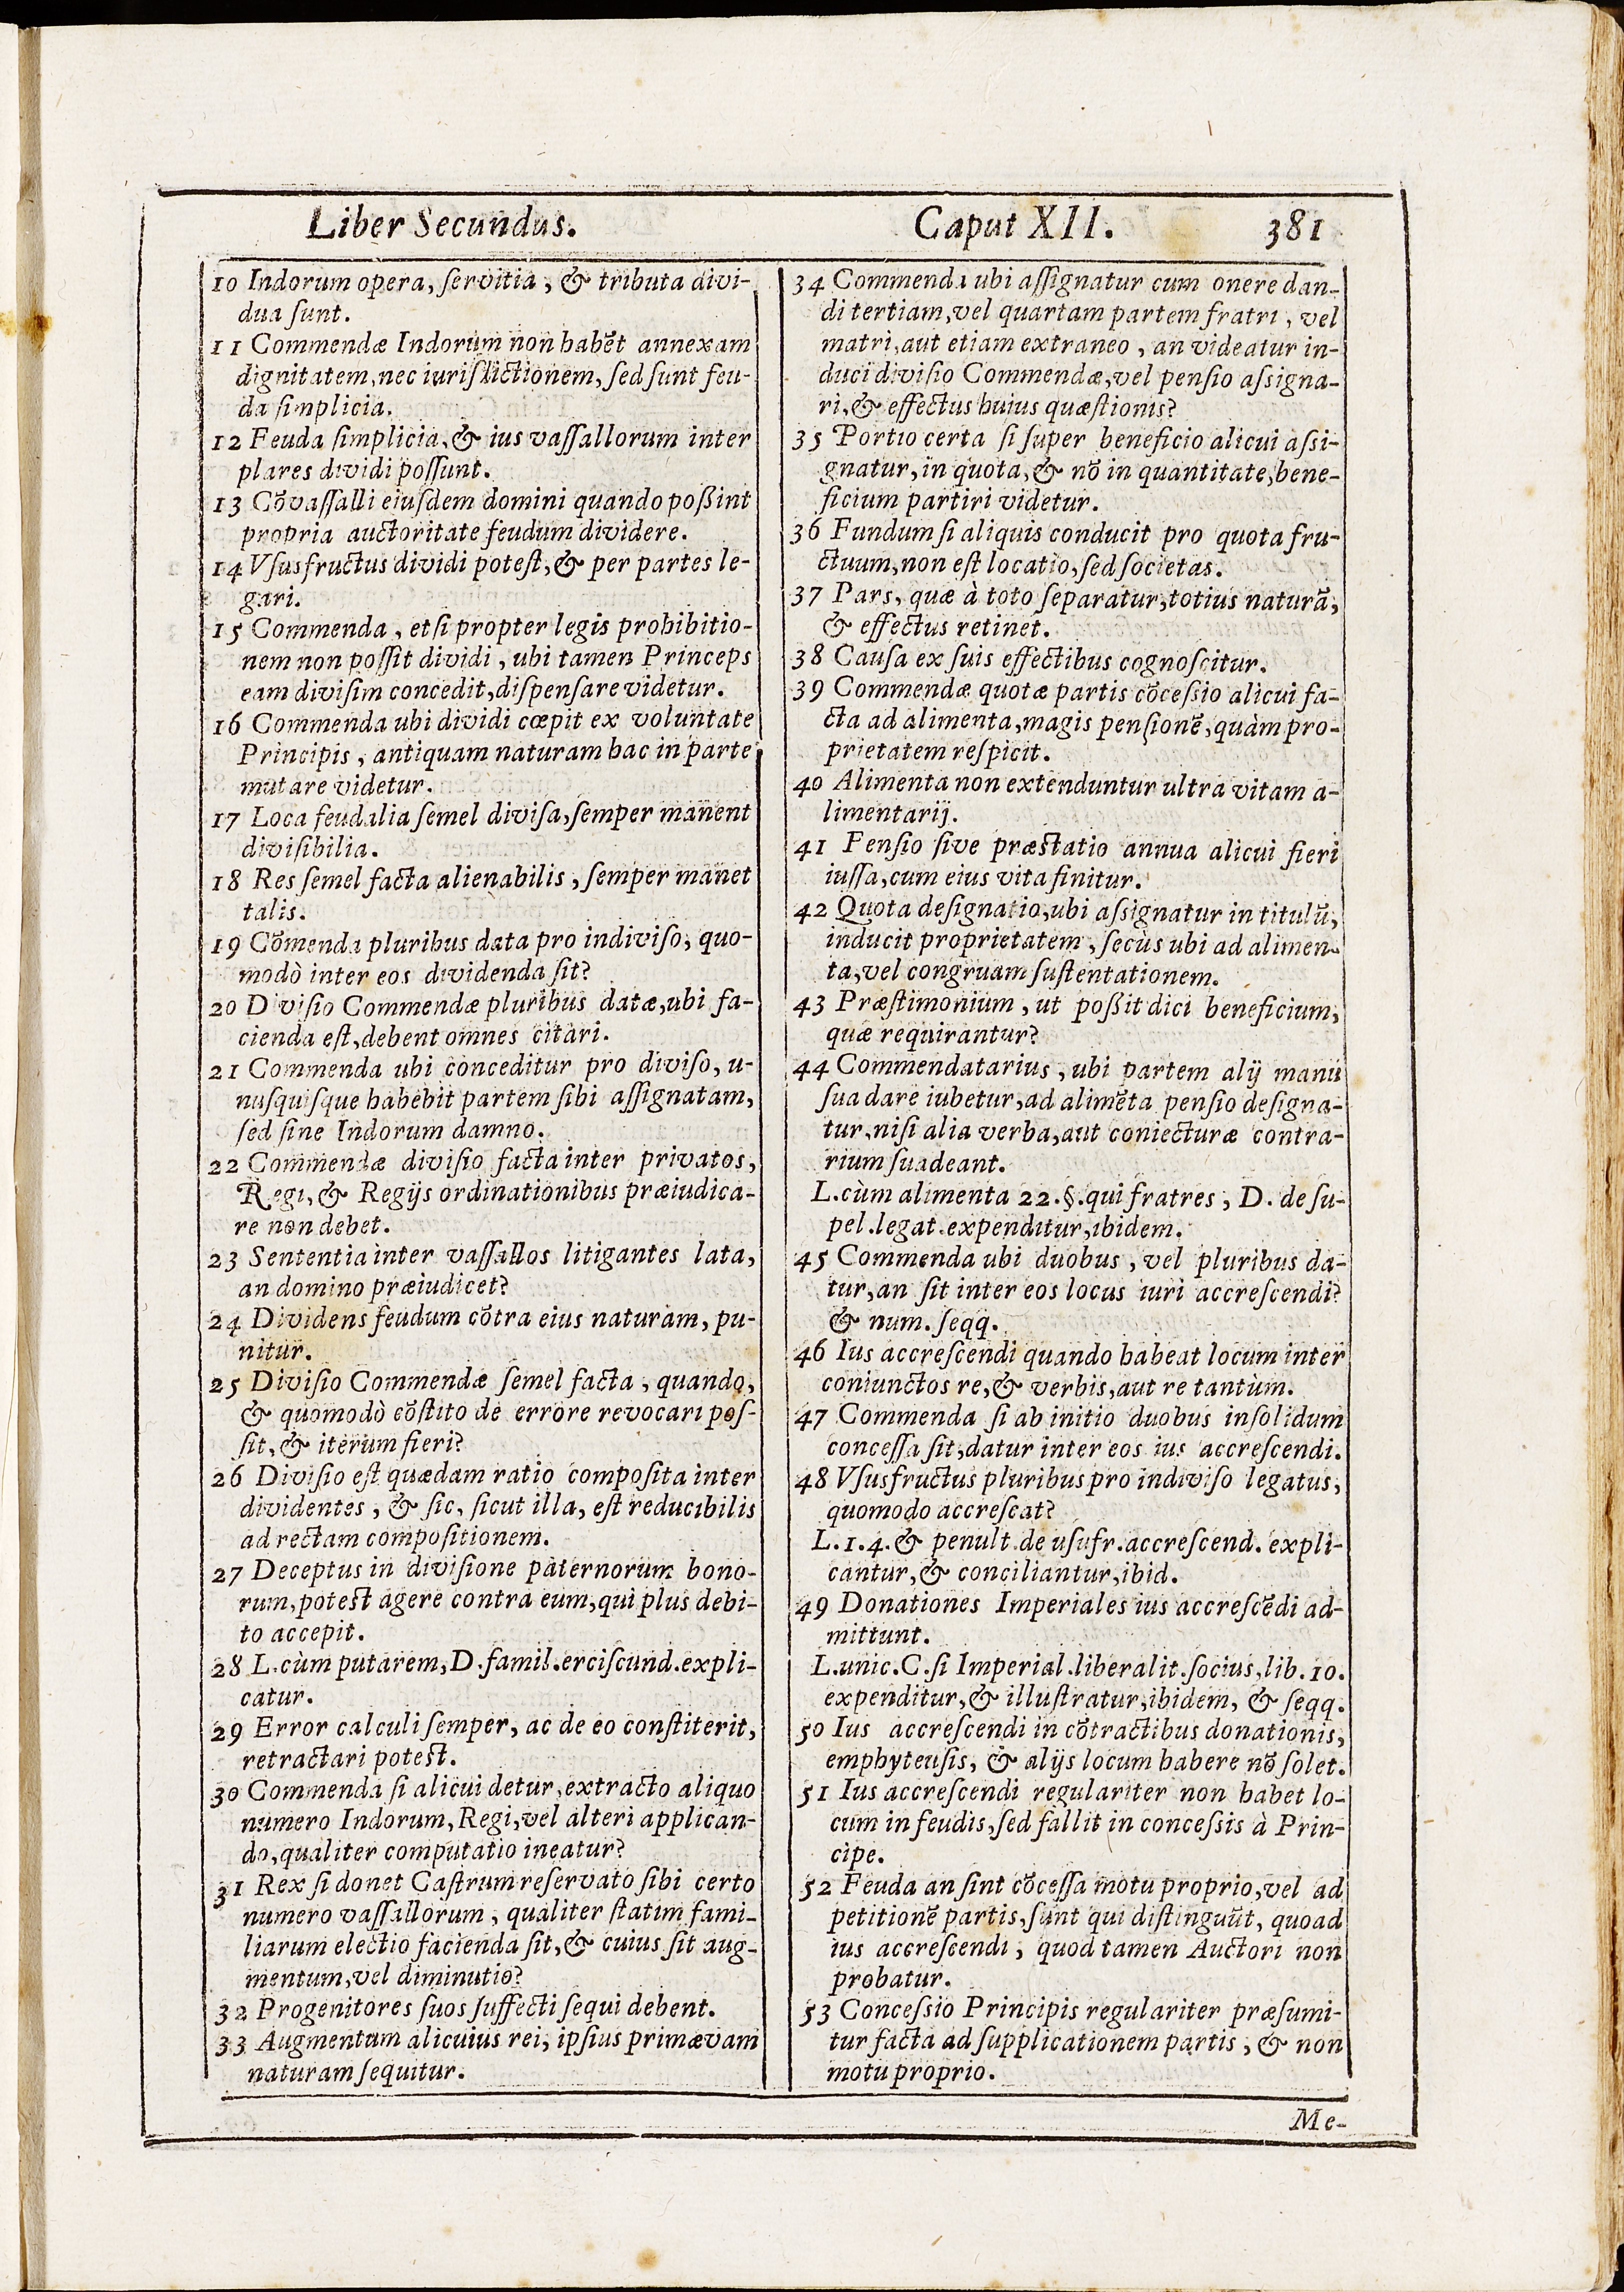 Liber Secundus. Caput XII. 381
10 Indorum opera, ſervitia, & tributa divi-
dua ſunt.
11 Commendæ Indorum non habẽt annexam
dignitatem, nec iuriſdictionem, ſed ſunt feu-
da ſimplicia.
12 Feuda ſimplicia, & ius vaſſallorum inter
plares dividi poſſunt.
13 Cõvaſſalli eiuſdem domini quando poßint
propria auctoritate feudum dividere.
14 Vſusfructus dividi poteſt, & per partes le-
gari.
15 Commenda, etſi propter legis prohibitio-
nem non poſſit dividi, ubi tamen Princeps
eam diviſim concedit, diſpenſare videtur.
16 Commenda ubi dividi cœpit ex voluntate
Principis, antiquam naturam hac in parte
mutare videtur.
17 Loca feudalia ſemel diviſa, ſemper manent
diviſibilia.
18 Res ſemel facta alienabilis, ſemper manet
talis.
19 Cõmenda pluribus data pro indiviſo, quo-
modò inter eos dividenda ſit?
20 Diviſio Commendæ pluribus datæ, ubi fa-
cienda eſt, debent omnes citari.
21 Commenda ubi conceditur pro diviſo, u-
nuſquiſque habebit partem ſibi aſſignatam,
ſed ſine Indorum damno.
22 Commendæ diviſio facta inter privatos,
Regi, & Regijs ordinationibus præiudica-
re non debet.
23 Sententia inter vaſſallos litigantes lata,
an domino præiudicet?
24 Dividens feudum cõtra eius naturam, pu-
nitur.
25 Diviſio Commendæ ſemel facta, quando,
& quomodò cõſtito de errore revocari poſ-
ſit, & iterum fieri?
26 Diviſio eſt quædam ratio compoſita inter
dividentes, & ſic, ſicut illa, eſt reducibilis
ad rectam compoſitionem.
27 Deceptus in diviſione paternorum bono-
rum, poteſt agere contra eum, qui plus debi-
to accepit.
28 L. cùm putarem, D. famil. erciſcund. expli-
catur.
29 Error calculi ſemper, ac de eo conſtiterit,
retractari poteſt.
30 Commenda ſi alicui detur, extracto aliquo
numero Indorum, Regi, vel alteri applican-
do, qualiter computatio ineatur?
31 Rex ſi donet Caſtrum reſervato ſibi certo
numero vaſſallorum, qualiter ſtatim fami-
liarum electio facienda ſit, & cuius ſit aug-
mentum, vel diminutio?
32 Progenitores ſuos ſuffecti ſequi debent.
33 Augmentum alicuius rei, ipſius primævam
naturam ſequitur.
34 Commenda ubi aſſignatur cum onere dan-
di tertiam, vel quartam partem fratri, vel
matri, aut etiam extraneo, an videatur in-
duci diviſio Commendæ, vel penſio aſsigna-
ri, & effectus huius quæſtionis?
35 Portio certa ſi ſuper beneficio alicui aſsi-
gnatur, in quota, & nõ in quantitate, bene-
ficium partiri videtur.
36 Fundum ſi aliquis conducit pro quota fru-
ctuum, non eſt locatio, ſed ſocietas.
37 Pars, quæ à toto ſeparatur, totius naturã,
& effectus retinet.
38 Cauſa ex ſuis effectibus cognoſcitur.
39 Commendæ quotæ partis cõceſsio alicui fa-
cta ad alimenta, magis penſionẽ, quàm pro-
prietatem reſpicit.
40 Alimenta non extenduntur ultra vitam a-
limentarij.
41 Fenſio ſive præſtatio annua alicui fieri
iuſſa, cum eius vita finitur.
42 Quota deſignatio, ubi aſsignatur in titulũ,
inducit proprietatem, ſecùs ubi ad alimen-
ta, vel congruam ſuſtentationem.
43 Præſtimonium, ut poßit dici beneficium,
quæ requirantur?
44 Commendatarius, ubi partem alij manu
ſua dare iubetur, ad alimẽta penſio deſigna-
tur, niſi alia verba, aut coniecturæ contra-
rium ſuadeant.
L. cùm alimenta 22. §. qui fratres, D. de ſu-
pel. legat. expenditur, ibidem.
45 Commenda ubi duobus, vel pluribus da-
tur, an ſit inter eos locus iuri accreſcendi?
& num. ſeqq.
46 Ius accreſcendi quando habeat locum inter
coniunctos re, & verbis, aut re tantùm.
47 Commenda ſi ab initio duobus inſolidum
conceſſa ſit, datur inter eos ius accreſcendi.
48 Vſusfructus pluribus pro indiviſo legatus,
quomodo accreſcat?
L. 1. 4. & penult. de uſufr. accreſcend. expli-
cantur, & conciliantur, ibid.
49 Donationes Imperiales ius accreſcẽdi ad-
mittunt.
L. unic. C. ſi Imperial. liberalit. ſocius, lib. 10.
expenditur, & illuſtratur, ibidem, & ſeqq.
50 Ius accreſcendi in cõtractibus donationis,
emphyteuſis, & alijs locum habere nõ ſolet.
51 Ius accreſcendi regulariter non habet lo-
cum in feudis, ſed fallit in conceſsis à Prin-
cipe.
52 Feuda an ſint cõceſſa motu proprio, vel ad
petitionẽ partis, ſunt qui diſtinguũt, quoad
ius accreſcendi, quod tamen Auctori non
probatur.
53 Conceſsio Principis regulariter præſumi-
tur facta ad ſupplicationem partis, & non
motu proprio.
Me-